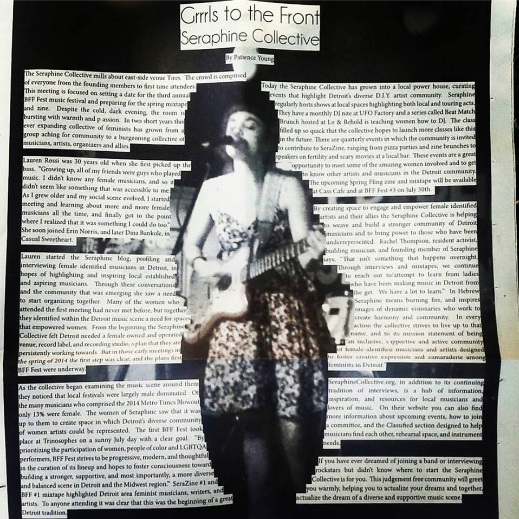 Grrrls to the Front
Seraphine Collective
By Patience Young
The Seraphine Collective mills about east-side venue Tires. The crowd is comprised
of everyone from the founding members to first time attendees.
This meeting is focused on setting a date for the third annual
BFF Fest music festival and preparing for the spring mixtape
and zine. Despite the cold, dark evening, the room is
bursting with warmth and passion. In two short years this
ever expanding collective of feminists has grown from a
group aching for a community to a burgeoning collective of
musicians, artists, organizers and allies.
Lauren Rossi was 30 years old when she first picked up the
bass. "Growing up, all of my friends were guys who played
music. I didn't know any female musicians, and so it
didn't seem like something that was accessible to me.
As I grew older and my social scene evolved, I started
meeting and learning about more and more female
musicians all the time, and finally got to the point
where I realized that it was something I could do too."
She soon joined Erin Norris, and later Dina Bankole, in
Casual Sweetheart.
Lauren started the Seraphine blog, profiling and
interviewing female identified musicians in Detroit, in
hopes of highlighting and inspiring local established
and aspiring musicians. Through these conversations
and the community that was emerging she saw a need
to start organizing together. Many of the women who
attended the first meeting had never met before, but together
they identified within the Detroit music scene a need for space
that empowered women. From the beginning the Seraphine
Collective felt Detroit needed a female owned and operated
venue, record label, and recording studio, a plan that they are
persistently working towards. But in those early meetings in
the spring of 2014 the first step was clear, and the plan for
BFF Fest were underway.
As the collective began examining the music scene around them
they noticed that local festivals were largely male dominated. Of
the many musicians who comprised the 2014 Metro Times Blowout
only 13% were female. The women of Seraphine saw that it was
up to them to create space in which Detroit's diverse community
of women artists could be represented. The first BFF Fest took
place at Trinosophes on a sunny July day with a clear goal: "By
prioritizing the participation of women, people of color and LGBTQA
performers, BFF Fest strives to be progressive, modern, and thoughtful
in the curation of its lineup and hopes to foster consciousness towards
building a stronger, supportive, and most importantly, a more diverse
and balanced scene in Detroit and the Midwest region." SeraZine #1 and
BFF #1 mixtape highlighted Detroit area feminist musicians, writers, and
artists. To anyone attending it was clear that this was the beginning of a great
Detroit tradition.
Today the Seraphine Collective has grown into a local power house, curating
events that highlight Detroit's diverse D.I.Y. artist community. Seraphine
regularly hosts shows at local spaces highlighting both local and touring acts.
They have a monthly DJ nite at UFO Factory and a series called Beat Match
Brunch hosted at Lo & Behold is teaching women how to DJ. The class
filled up so quick that the collective hopes to launch more classes like this
in the future. There are quarterly events in which the community is invited
to contribute to SeraZine, ranging from pizza parties and zine brunches to
speakers on fertility and scary movies at a local bar. These events are a great
opportunity to meet some of the amazing women involved and to get
to know other artists and musicians in the Detroit community.
The upcoming Spring Fling zine and mixtape will be available
at Cass Cafe and at BFF Fest #3 on July 30th.
By creating space to engage and empower female identified
artists and their allies the Seraphine Collective is helping
to weave and build a strong community of Detroit
musicians and to bring power to those who have been
underrepresented. Rachel Thompson, resident activist,
building musician, and founding member of Seraphine
says, "That isn't something that happens overnight.
Through interviews and mixtapes, we continue
to reach out to learn from ladies
who have been making music in Detroit from
the get. We have a lot to learn." In Hebrew
Seraphine means burning fire, and inspires
images of dynamic visionaries who work to
create harmony and community. In every
action the collective strives to live up to that
name, and to its mission statement of being
an inclusive, supportive and active community
of female identifying musicians and artists designed
to foster creative expression and camaraderie among
feminists in Detroit.
SeraphineCollective.org, in addition to its continuing
tradition of interviews, is a hub of information,
inspiration, and resources for local musicians and
lovers of music. On their website you can also find
more information about upcoming events, how to join
a committee, and the Classified section designed to help
musicians find each other, rehearsal space, and instrument
needs.
If you have ever dreamed of joining a band or interviewing
rockstars but didn't know where to start the Seraphine
Collective is for you. This judgement free community will greet
you warmly, helping you to actualize your dreams and together,
actualize the dream of a diverse and supportive music scene.